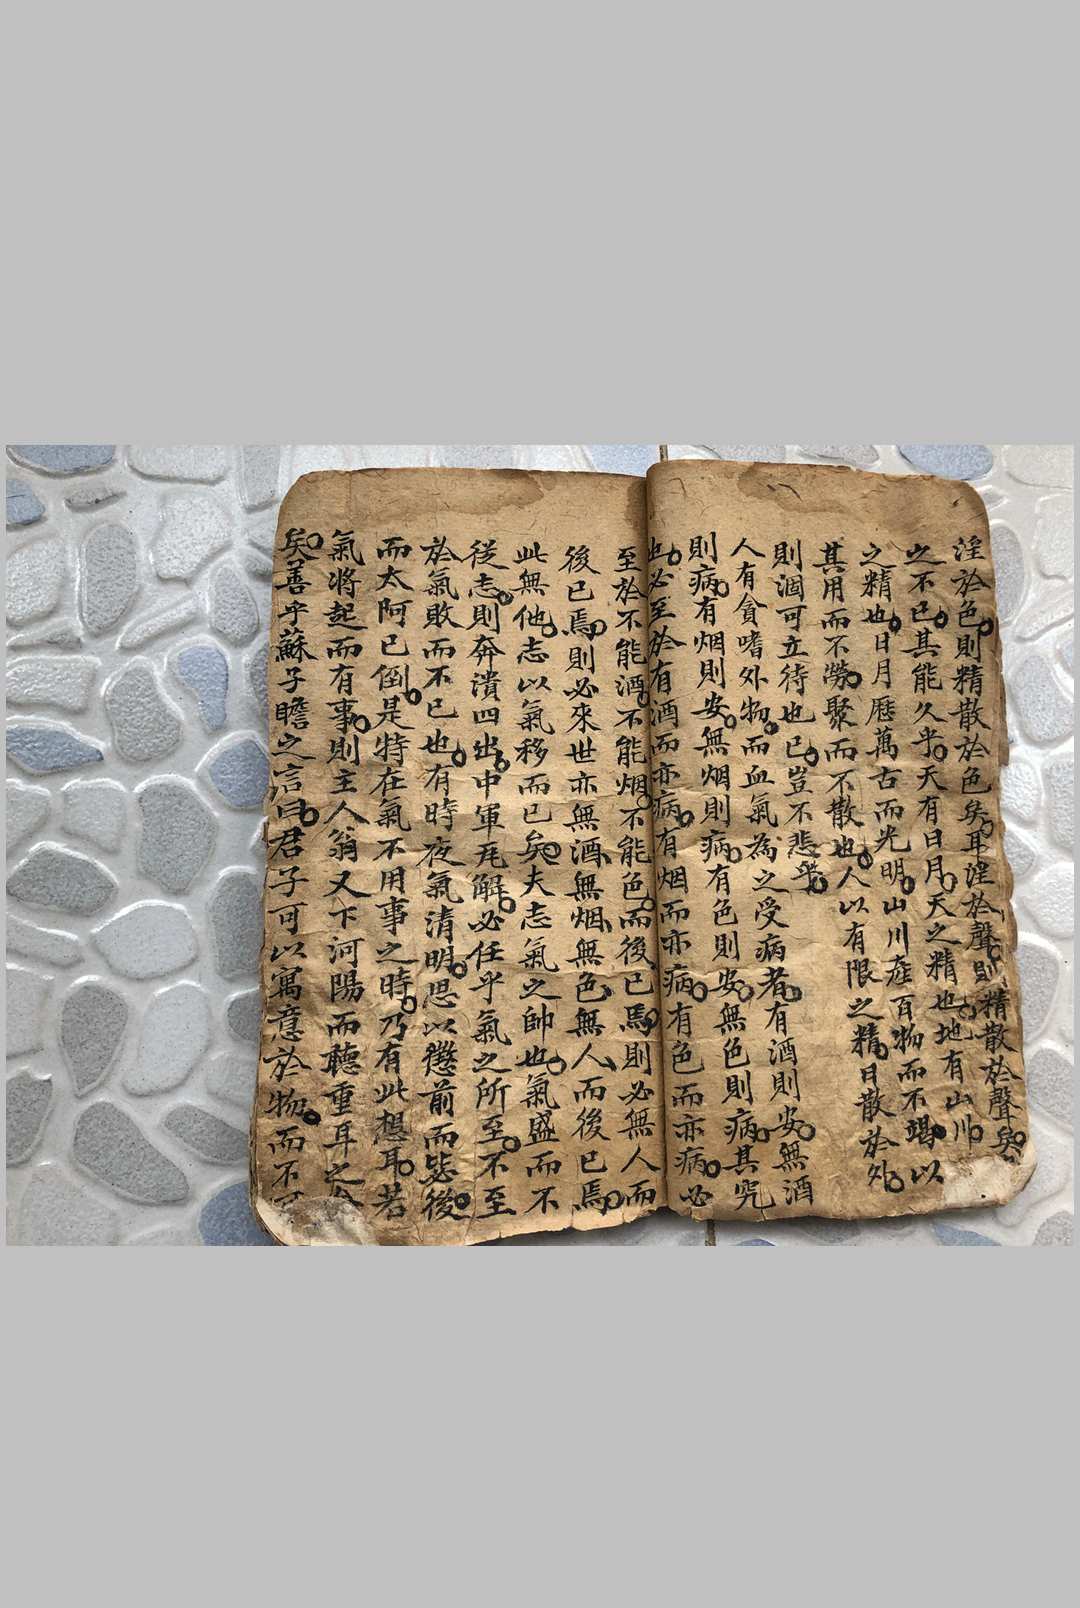 淫於色則精散於色矣耳淫於聲則精散於聲矣
之不已其能久乎天有日月天之精也地有山川
之精也日月歷萬古而光明山川產百物而不竭以
其用而不勞聚而不散也人以有限之精日散於外
則涸可立待也已豈不悲乎
人有貪嗜外物而血氣為之受病者有酒則安無酒
則病有烟則安無烟則病有色則安無色則病其究
也必至於有酒而亦病有烟而亦病有色而亦病必
至於不能酒不能烟不能色而後已焉則必無人而
後已焉則必來世亦無酒無烟無色無人而後已焉
此無他志以氣移而已矣夫志氣之帥也氣盛而不
從志則奔潰四出中軍瓦解必任乎氣之所至不至
於氣敗而不已也有時夜氣清明思以懲前而毖後
而太阿已倒是特在氣不用事之時乃有此想耳若
氣將起而有事則主人翁又下河陽而聽重耳之命
矣善乎蘇子瞻之言曰君子可以寓意於物而不可